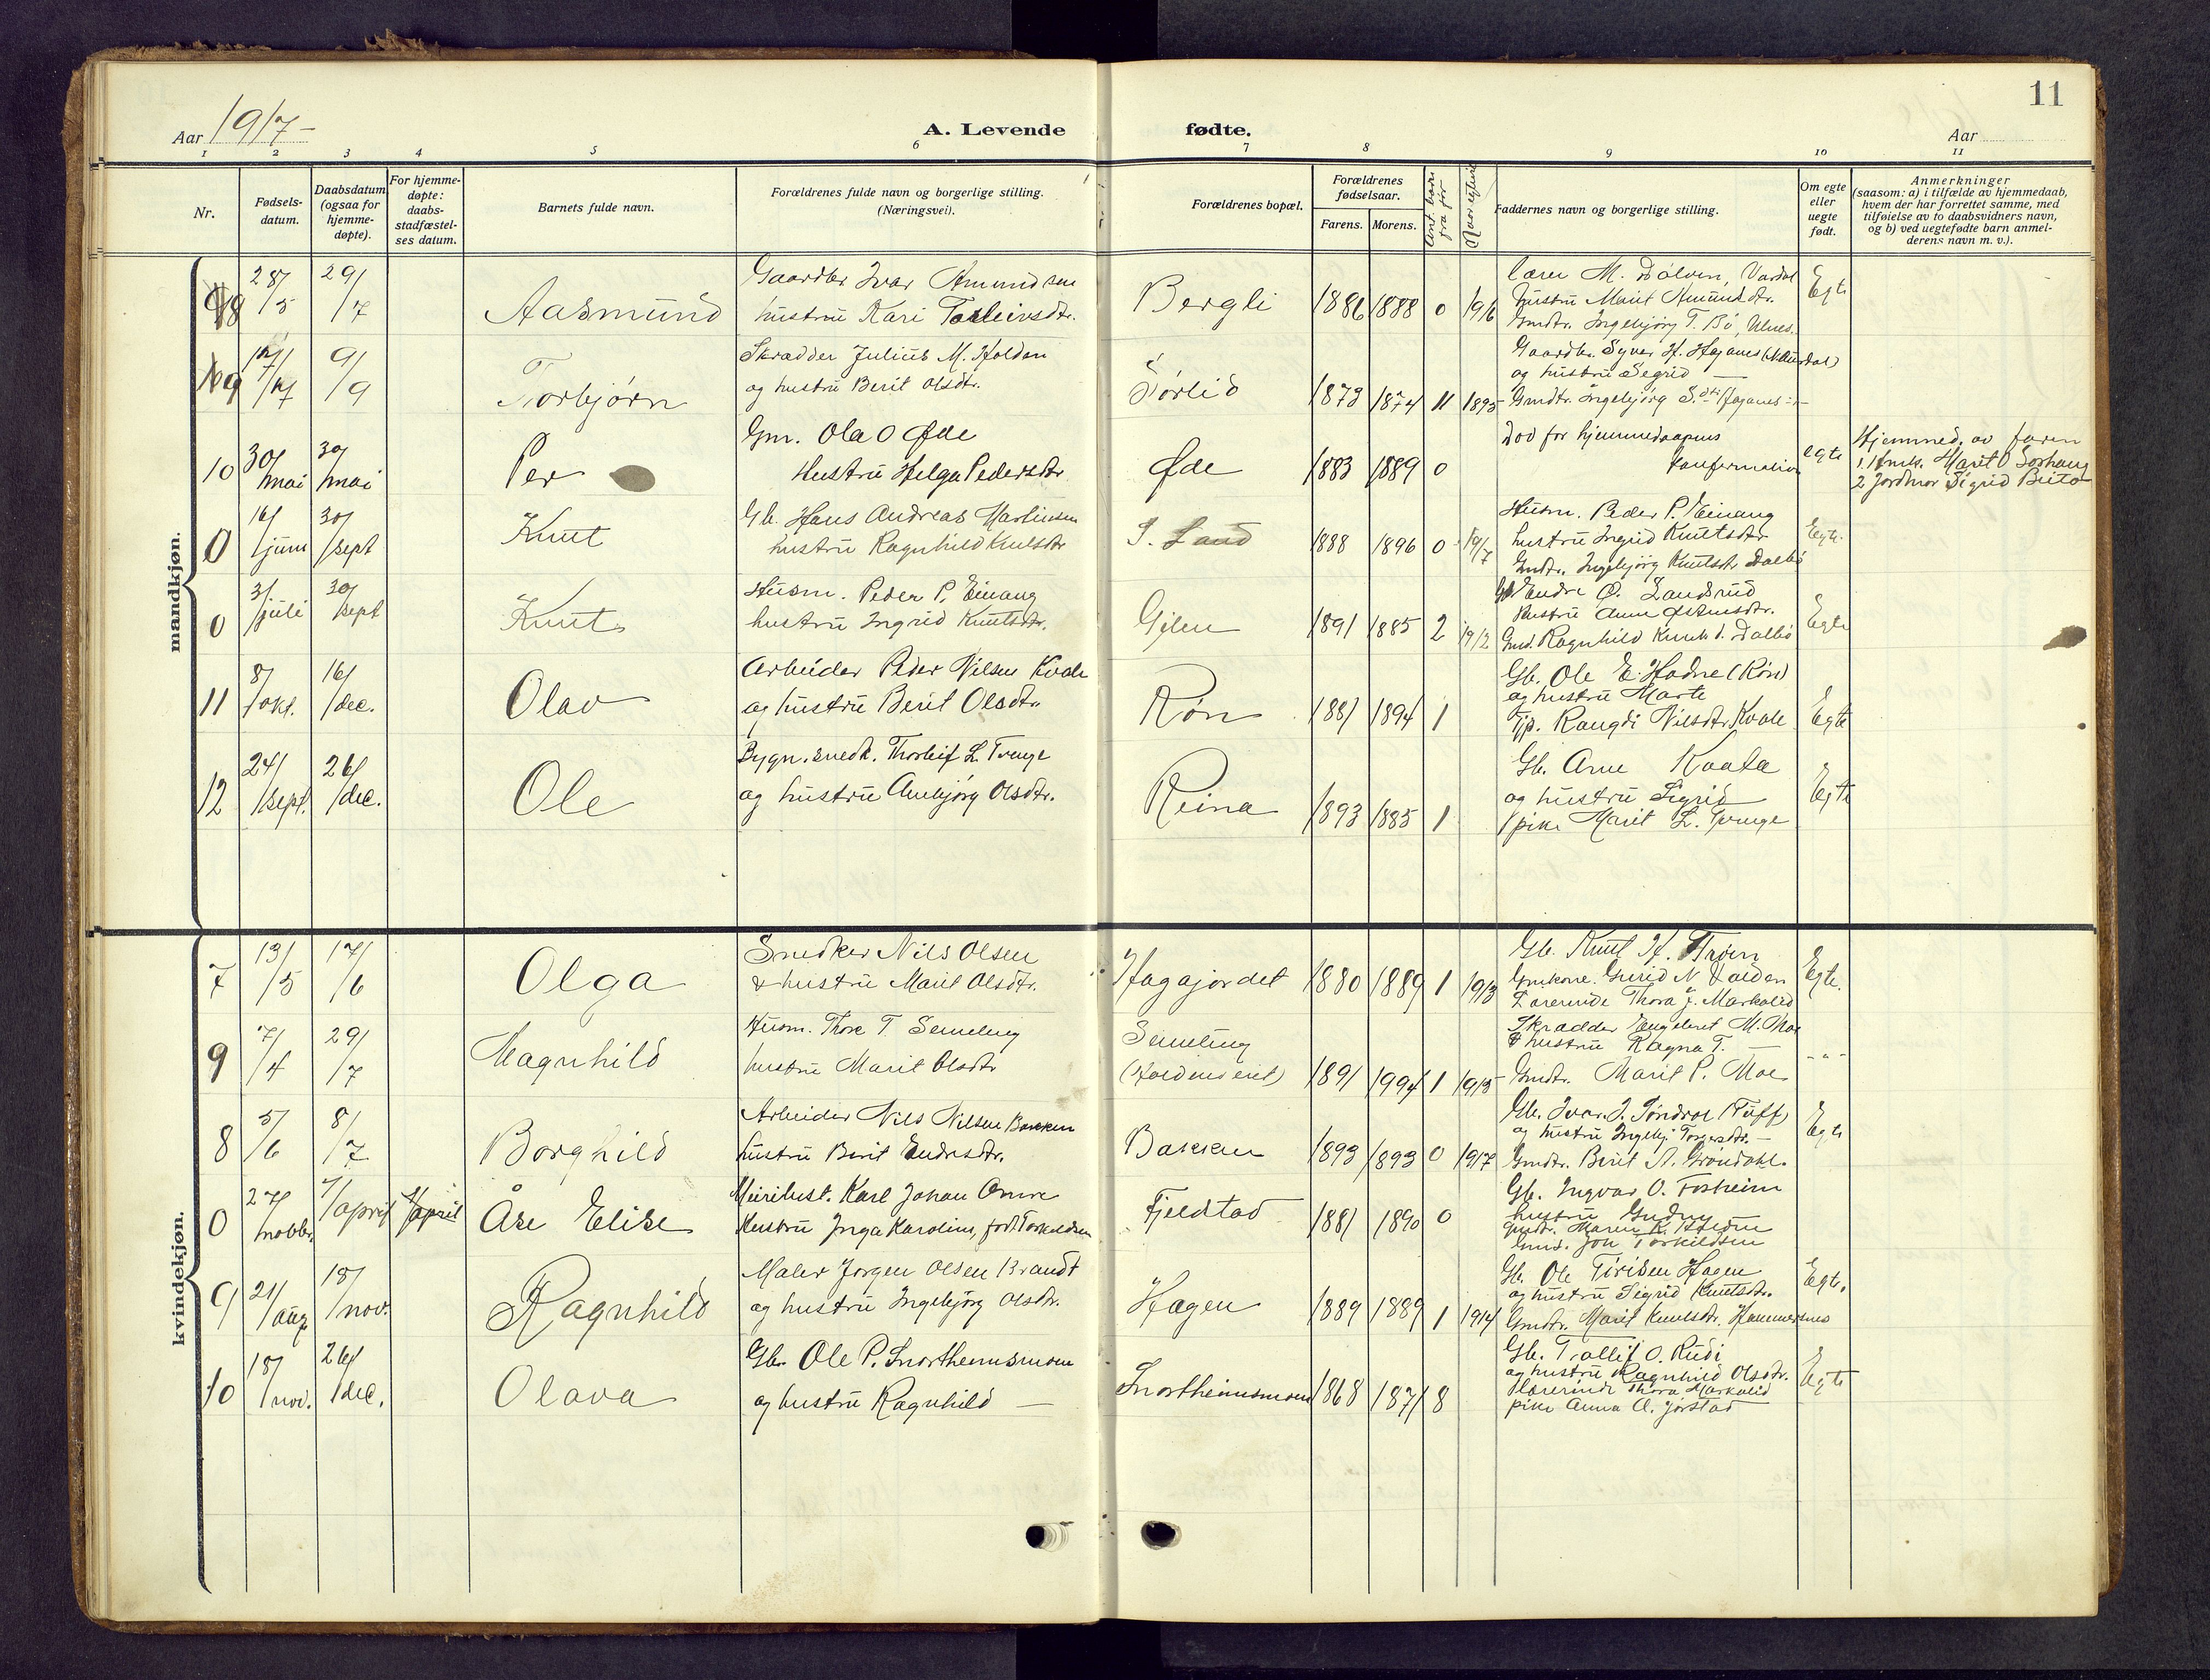 11
Aar 1917-
A. Levende fødte.
Aar
1 2 3 4 5 6 7 8 9 10 11
Nr.
Fødsels-
datum.
Daabsdatum
(ogsaa for
hjemme-
døpte).
For hjemme-
døpte:
daabs-
stadfæstel-
ses datum.
Barnets fulde navn.
Forældrenes fulde navn og borgerlige stilling.
(Næringsvei).
Forældrenes bopæl.
Forældrenes
fødselsaar.
Farens. Morens.
Ant. barn
fra før
Faddernes navn og borgerlige stilling.
Om egte
eller
uegte
født.
Anmerkninger
(saasom: a) i tilfælde av hjemmedaab,
hvem der har forrettet samme, med
tilføielse av to daabsvidners navn,
og b) ved uegtefødte barn anmel-
derens navn m. v.).
mandkjøn.
8 28/5 29/7 Aasmund
Gaardbr Ivar Amundsen
hustru Kari Torleivsdtr.
Bergli 1886 1888 0 1916
Lærer M. Dølven, Vardal
hustru Marit Amundsdtr.
Gmdtr. Ingebjørg T. Bø, Ulnes.
Egte
9 9/9 Torbjørn
Skrædder Julius M. Holdan
og hustru Berit Olsdtr.
Sørlid 1873 1874 11 1895
Gaardbr. Syver H. Haganes (N Aurdal)
og hustru Segrid —
Gmdtr. Ingebjørg S.dtr Haganes
10 30/mai 30/mai Per
Gm. Ola O Øde
Hustru Helga Pedersdtr
Øde 1883 1889 0
Død før hjemmedaapens
konfirmation
egte
Hjemmed. av faren
1. Marit O Sørhaug
2 Jordmor Sigrid Beito
0 16/juni 30/sept Knut
Gb. Hans Andreas Martinsen
hustru Ragnhild Knutsdtr
S. Land 1888 1896 0 1917
Husm. Peder P. Einang
hustru Ingrid Knutsdtr
Gmdtr. Ingebjørg Knutsdtr Dalbø
Egte.
0 3/juli 30/sept Knut
Husm. Peder P. Einang
hustru Ingrid Knutsdtr.
Gjilen 1891 1885 2 1912
Gb Endre O. Landsrud
Hustru Anne
Gmd. Ragnhild Knuts d. Dalbø
Egte
11 8/okt. 16/dec. Olav
Arbeider Peder Nilsen Kvale
og hustru Berit Olsdtr.
Røn 1881 1894 1
Gb. Ole E. Hadne (Røn)
og hustru Marte
Tjp. Rangdi Nilsdtr. Kvale
Egte
12 24/sept. 26/dec. Ole
Bygn.snedk. Thorleif L. Tvenge
og hustru Anebjørg Olsdtr.
Reina 1893 1885 1
Gb. Arne Kvata
og hustru Sigrid
pike Marit L. Tvenge
Egte
kvindekjøn.
7 13/5 17/6 Olga
Snedker Nils Olsen
& hustru Marit Olsdtr.
Hagajordet 1880 1889 1 1913
Gb. Knut H. Trøen
Gmkone. Gurid N Haldan
Lærerinde Thora J. Markalid
Egte.
9 7/4 29/7 Magnhild
Husm. Thore T. Semeling
hustru Marit Olsdtr
Semeling
1891 1994 1 1915
Skrædder Engebret M. Moe
& hustru Ragna T. —
Gmdtr. Marit P. Moe
- " -
8 5/6 8/7 Borghild
Arbeider Nils Nilsen Bakken
hustru Berit Endresdtr.
Bakken 1893 1893 0 1917
Gb. Ivar J. Søndrol (Tuff)
og hustru Ingebj Torgersdtr. —
Gmdtr. Berit A. Grøndahl.
Egte
0 27/novbr. 1/april 1/april Åse Elise
Meieribest. Karl Johan Omre
Hustru Inga Karoline, født Torkildsen
Fjeldtad 1881 1890 0
Gb. Ingvar O. Fosheim
hustru Gudny
Gmdtr. Maren K.
Gmd. Jon Torkildsen
9 21/aug. 18/nov. Ragnhild
Maler Jørgen Olsen Brandt
og hustru Ingebjørg Olsdtr.
Hagen 1889 1889 1 1914
Gb. Ole Hagen
og hustru Sigrid Knutsdtr.
Gmdtr. Marit Knutsdtr. Hammersnes
Egte.
10 18/nov. 26/dec. Olava
Gbr. Ole P. Snortheimsmoen
og hustru Ragnhild —
Snortheimsmoen 1868 1871 8
Gb. Trollif O. Rudi
og hustru Ragnhild Olsdtr.
Lærerinde Thora Markalid
pike Anna O. Jørstad
Egte